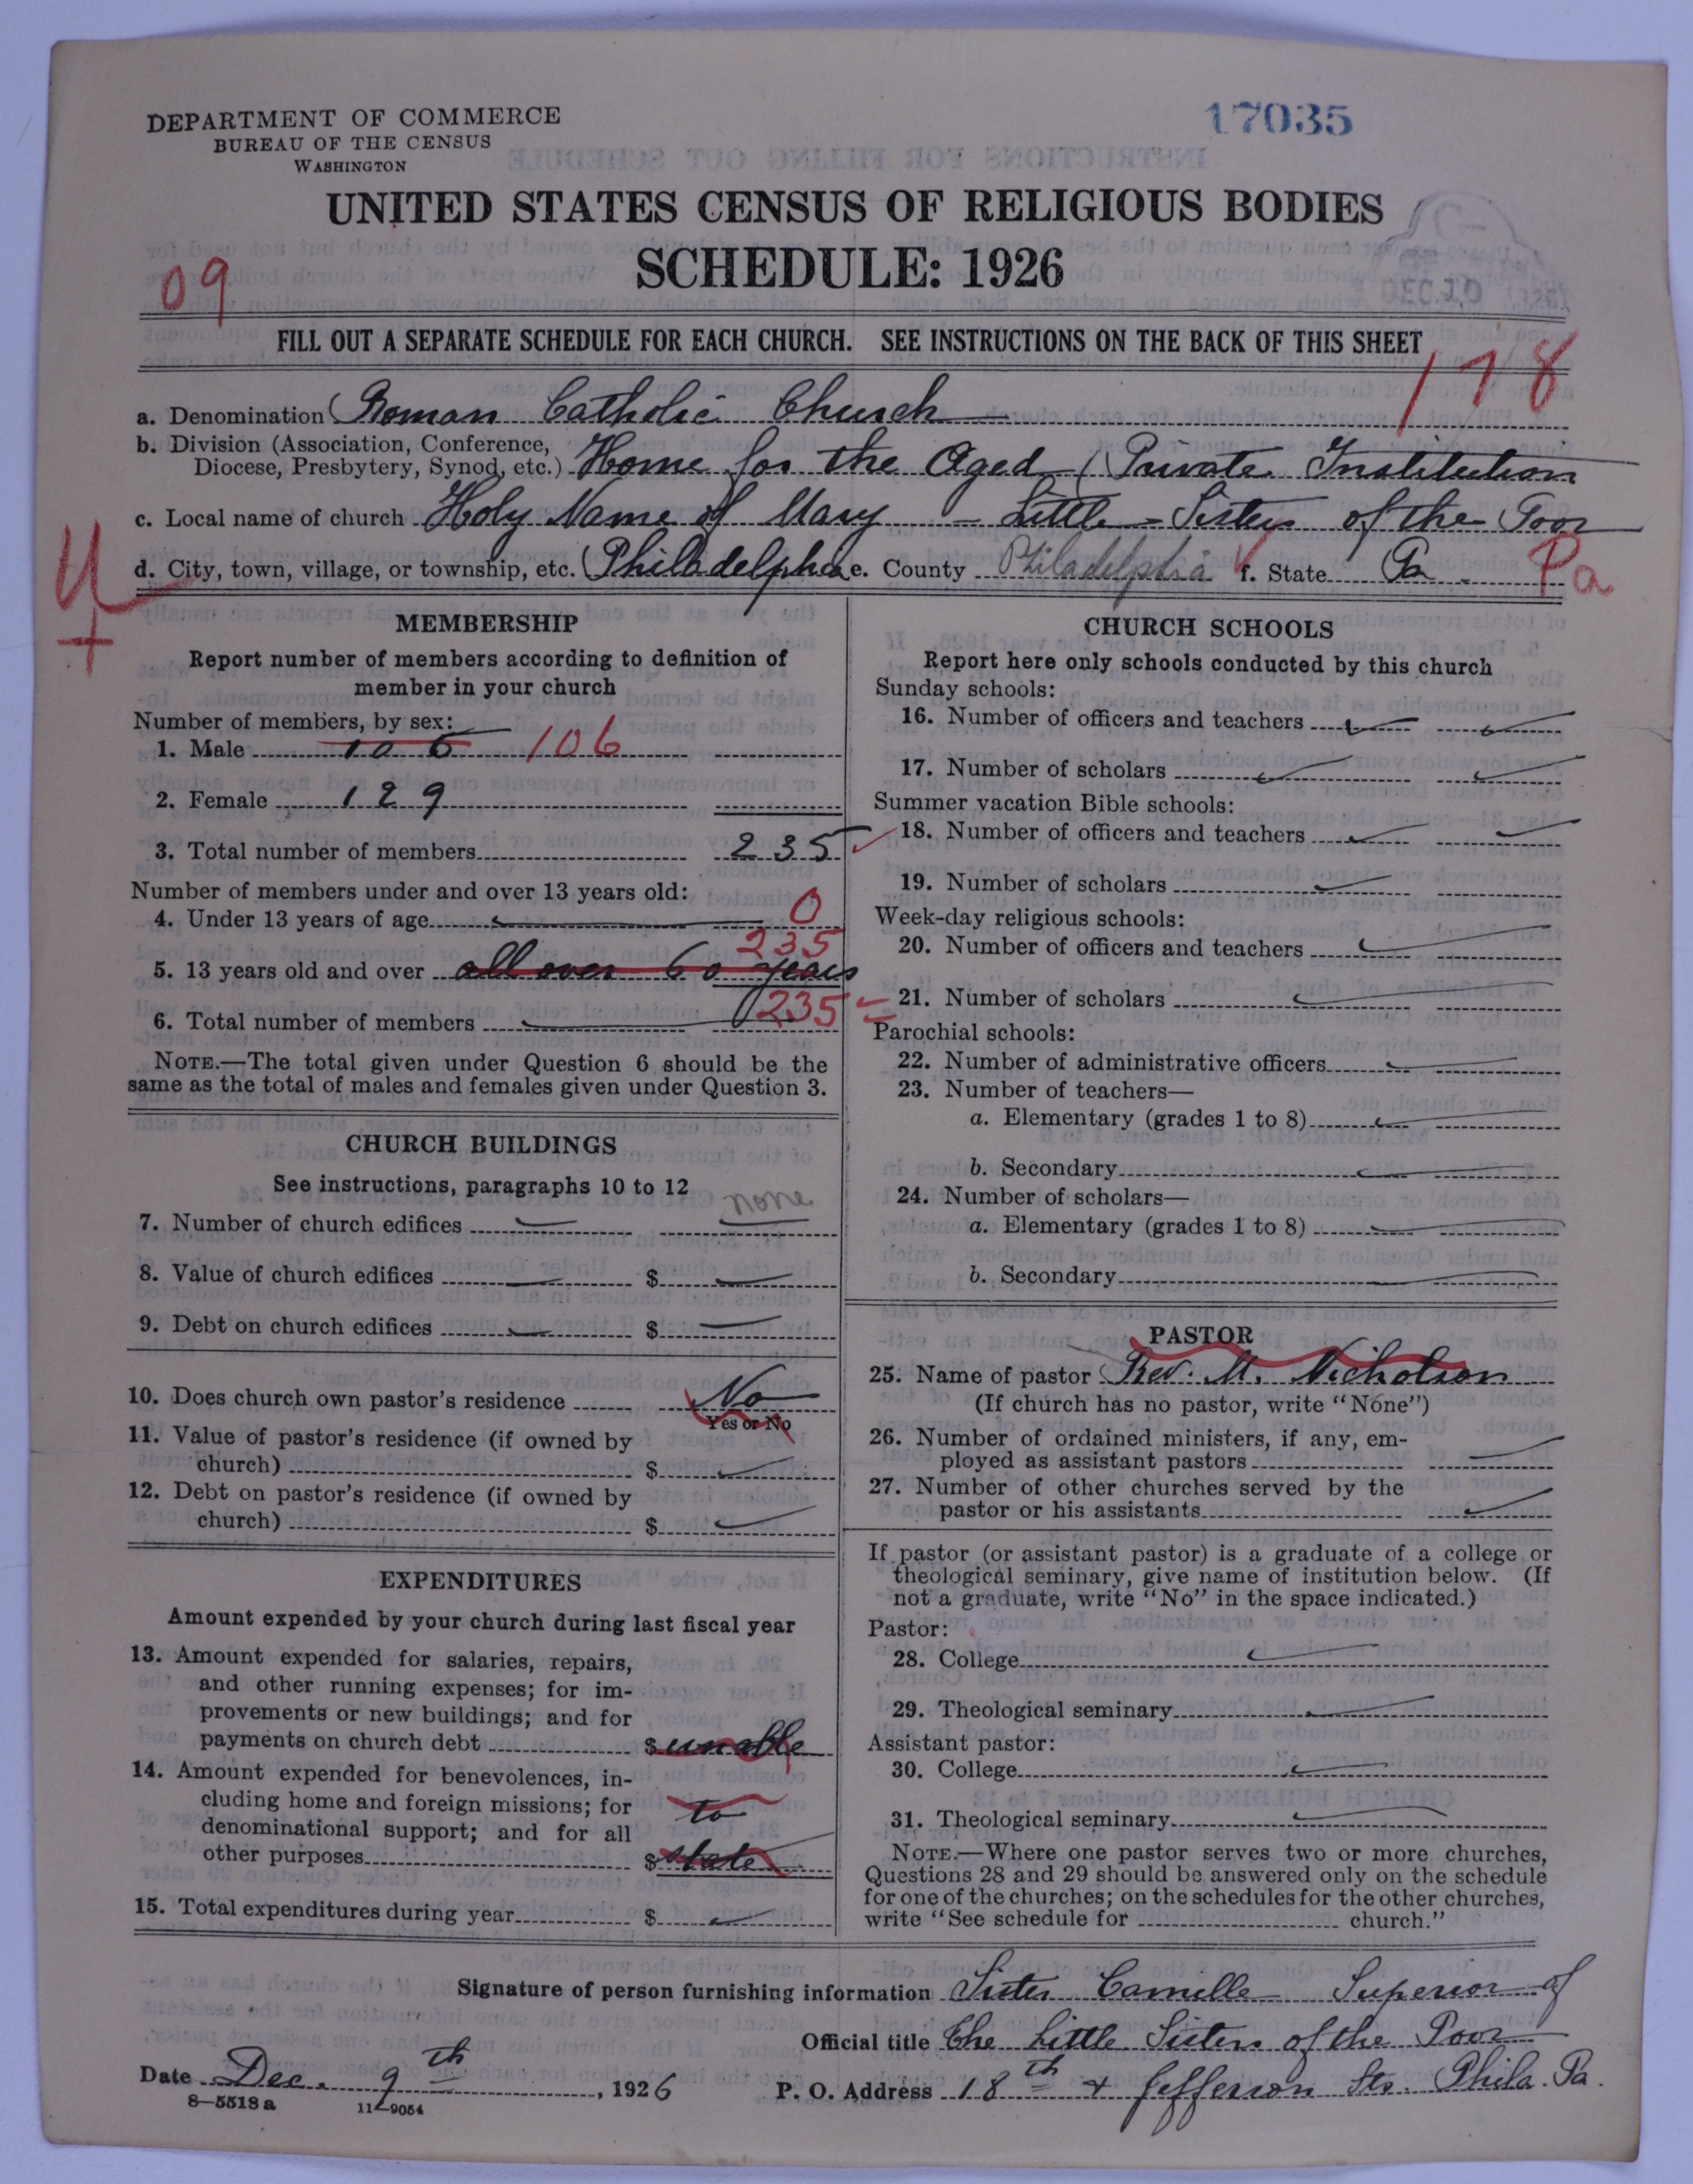 DEPARTMENT OF COMMERCE
BUREAU OF THE CENSUS
WASHINGTON
17035
UNITED STATES CENSUS OF RELIGIOUS BODIES
SCHEDULE: 1926
09
DEC 10
FILL OUT A SEPARATE SCHEDULE FOR EACH CHURCH. SEE INSTRUCTIONS ON THE BACK OF THIS SHEET
178
a. Denomination Roman Catholic Church
b. Division (Association, Conference, Diocese, Presbytery, Synod, etc.) Home for the Aged (Private Institution
c. Local name of church Holy Name of Mary - Little - Sisters of the Poor
d. City, town, village, or township, etc. Philadelphia e. County Philadelphia f. State Pa. Pa
MEMBERSHIP
Report number of members according to definition of
member in your church
Number of members, by sex:
1. Male 106 106
2. Female 129
3. Total number of members 235
Number of members under and over 13 years old:
4. Under 13 years of age 0
235
5. 13 years old and over all over 60 years
6. Total number of members 235
NOTE.—The total given under Question 6 should be the
same as the total of males and females given under Question 3.
CHURCH BUILDINGS
See instructions, paragraphs 10 to 12
none
7. Number of church edifices
8. Value of church edifices $
9. Debt on church edifices $
10. Does church own pastor's residence No
Yes or No
11. Value of pastor's residence (if owned by
church) $
12. Debt on pastor's residence (if owned by
church) $
EXPENDITURES
Amount expended by your church during last fiscal year
13. Amount expended for salaries, repairs,
and other running expenses; for im-
provements or new buildings; and for
payments on church debt $ unable
14. Amount expended for benevolences, in-
cluding home and foreign missions; for to
denominational support; and for all
other purposes $ state
15. Total expenditures during year $
CHURCH SCHOOLS
Report here only schools conducted by this church
Sunday schools:
16. Number of officers and teachers
17. Number of scholars
Summer vacation Bible schools:
18. Number of officers and teachers
19. Number of scholars
Week-day religious schools:
20. Number of officers and teachers
21. Number of scholars
Parochial schools:
22. Number of administrative officers
23. Number of teachers—
a. Elementary (grades 1 to 8)
b. Secondary
24. Number of scholars—
a. Elementary (grades 1 to 8)
b. Secondary
PASTOR
25. Name of pastor Rev. M. Nicholson
(If church has no pastor, write "None")
26. Number of ordained ministers, if any, em-
ployed as assistant pastors
27. Number of other churches served by the
pastor or his assistants
If pastor (or assistant pastor) is a graduate of a college or
theological seminary, give name of institution below. (If
not a graduate, write "No" in the space indicated.)
Pastor:
28. College
29. Theological seminary
Assistant pastor:
30. College
31. Theological seminary
NOTE.—Where one pastor serves two or more churches,
Questions 28 and 29 should be answered only on the schedule
for one of the churches; on the schedules for the other churches,
write "See schedule for church."
Signature of person furnishing information Sister Camille Superior of
Official title The Little Sisters of the Poor
Date Dec. 9th, 1926 P. O. Address 18th + Jefferson Sts. Phila. Pa.
8—5518a 11—9054